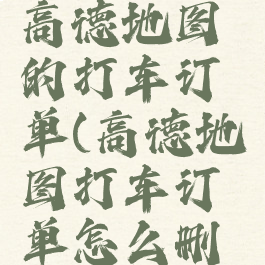 高德地图
的打车订
单(高德地
图打车订
单怎么删